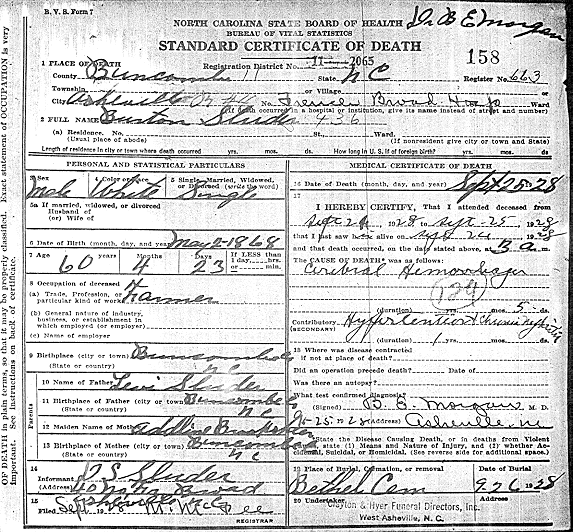 B. V. S. Form 7
NORTH CAROLINA STATE BOARD OF HEALTH Dr B E Morgan
BUREAU OF VITAL STATISTICS
STANDARD CERTIFICATE OF DEATH
158
1 PLACE OF DEATH
Registration District No. 11- 2065
County Buncombe State N C Register No. 663
Township or Village
City Asheville No. French Broad Hosp Ward
(If death occurred in a hospital or institution, give its name instead of street and number)
2 FULL NAME
(a) Residence. No. St., Ward.
(Usual place of abode) (If nonresident give city or town and State)
Length of residence in city or town where death occurred yrs. mos. ds. How long in U. S. if of foreign birth? yrs. mos. ds.
PERSONAL AND STATISTICAL PARTICULARS
3 Sex 4 Color or Race 5 Single, Married, Widowed, or Divorced (write the word)
Male White Single
5a If married, widowed, or divorced
Husband of
(or) Wife of
6 Date of Birth (month, day, and year) May 2-1868
7 Age Years Months Days If LESS than
60 4 23 1 day, hrs.
or min.
8 Occupation of deceased
(a) Trade, Profession, or particular kind of work Farmer
(b) General nature of industry,
business, or establishment in
which employed (or employer)
(c) Name of employer
9 Birthplace (city or town) Buncombe
(State or country) N C
Parents
10 Name of Father Levi
11 Birthplace of Father (city or town) Buncombe
(State or country) N C
12 Maiden Name of Mother
13 Birthplace of Mother (city or town) Buncombe
(State or country) N C
14
Informant
(Address)
Asheville
15
Filed Sept 28
REGISTRAR
MEDICAL CERTIFICATE OF DEATH
16 Date of Death (month, day, and year) Sept 25-28
17
I HEREBY CERTIFY, That I attended deceased from
1928 to Sept-25, 1928
that I last saw alive on Sept 24 1928
and that death occurred, on the date stated above, at 3 A m.
The CAUSE OF DEATH was as follows:
Cerebral Hemorrhage
(duration) yrs. mos. 5 ds.
Contributory Hypertension & Chronic Nephritis
(SECONDARY)
(duration) yrs. mos. ds.
18 Where was disease contracted
if not at place of death?
Did an operation precede death? Date of
Was there an autopsy?
What test confirmed diagnosis?
(Signed) B. E. Morgan M. D.
9-25-1928 (Address) Asheville NC
State the Disease Causing Death, or in deaths from Violent
state (1) Means and Nature of Injury, and (2) whether Acci-
dental, Suicidal, or Homicidal. (See reverse side for additional space).
19 Place of Burial, Cremation, or removal Date of Burial
Bethel Cem 9-26 1928
20 Undertaker
Clayton & Hyer Funeral Directors, Inc.
West Asheville, N. C.
Exact statement of OCCUPATION is very
properly classified.
OF DEATH in plain terms, so that it may be
Important. See instructions on back of certificate.